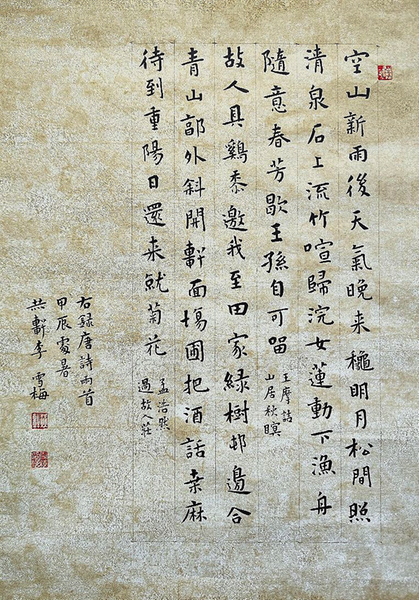 空山新雨後天氣晚来穐明月松間照
清泉石上流竹喧歸浣女蓮動下漁舟
隨意春芳歇王孫自可畱
王摩詰
山居秋暝
故人具鷄黍邀我至田家緑樹邨邊合
青山郭外斜開軒面場圃把酒話桒麻
待到重陽日還来就菊花
孟浩然
過故人莊
右録唐詩两首
甲辰處暑
共軒李雪梅